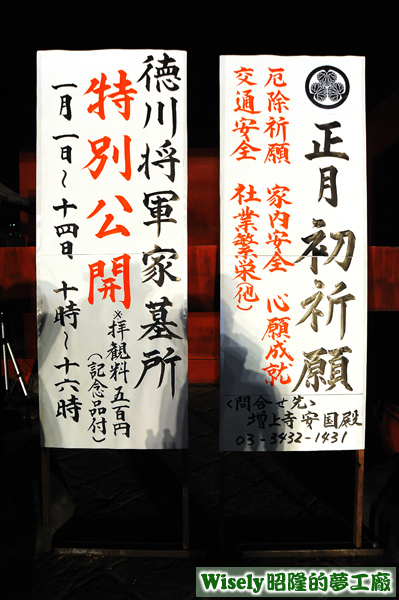 正月 初祈願
厄除祈願 家内安全 心願成就
交通安全 社業繁栄(他)
<問合せ先>
増上寺 安国殿
03-3432-1431
徳川将軍家墓所
特別公開
※拝観料五百円
(記念品付)
一月一日~十四日 十時~十六時
Wisely昭隆的夢工廠